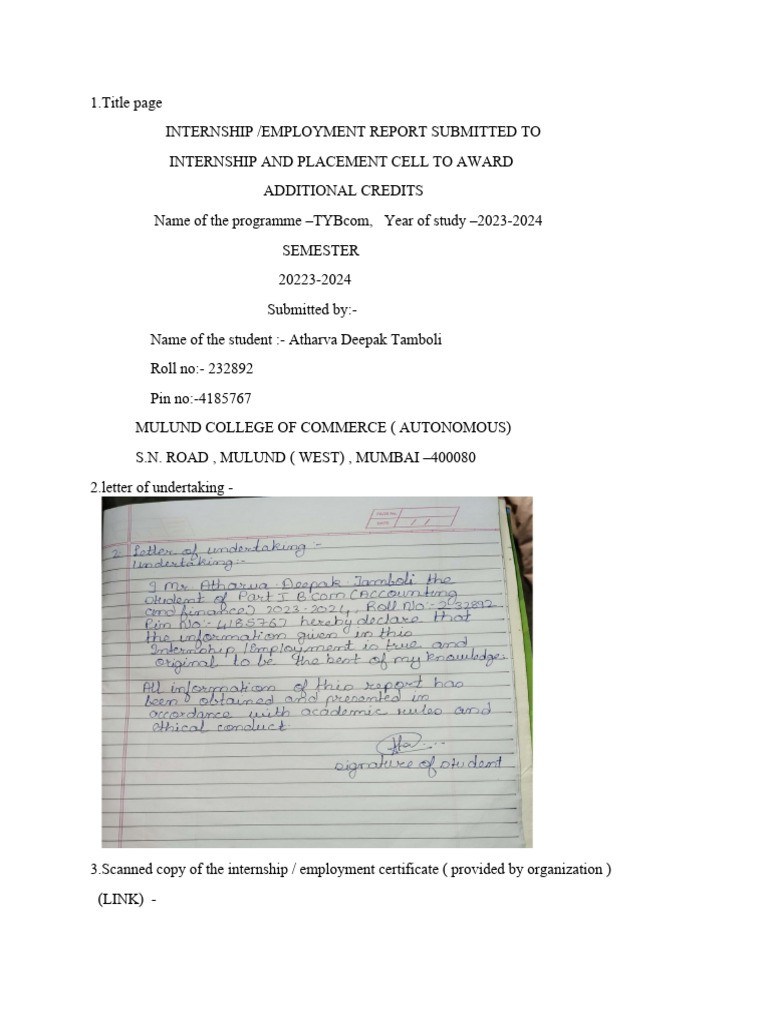 1.Title page
INTERNSHIP /EMPLOYMENT REPORT SUBMITTED TO
INTERNSHIP AND PLACEMENT CELL TO AWARD
ADDITIONAL CREDITS
Name of the programme –TYBcom, Year of study –2023-2024
SEMESTER
20223-2024
Submitted by:-
Name of the student :- Atharva Deepak Tamboli
Roll no:- 232892
Pin no:-4185767
MULUND COLLEGE OF COMMERCE ( AUTONOMOUS)
S.N. ROAD , MULUND ( WEST) , MUMBAI –400080
2.letter of undertaking -
DATE / /
2. Letter of undertaking :-
Undertaking:-
I Mr. Atharva Deepak Tamboli the
student of Part I B com (Accounting
and finance) 2023-2024, Roll No:- 232892
Pin No:- 4185767 hereby declare that
the information given in this
Internship /Employment is true and
original to be the best of my knowledge.
All information of this report has
been obtained and presented in
accordance with academic rules and
ethical conduct.
signature of student
3.Scanned copy of the internship / employment certificate ( provided by organization )
(LINK) -